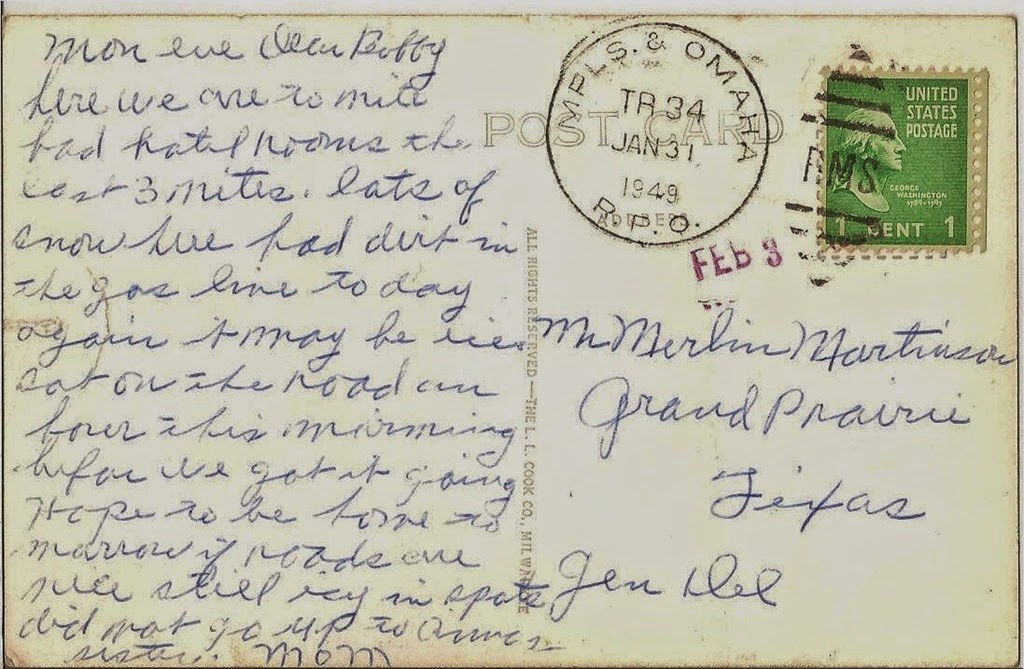 Mon eve Dear Bobby
here we are to nite
had hotel rooms the
last 3 nites. lots of
snow here had dirt in
the gas line to day
again it may be ice.
sat on the road an
hour this morning
before we got it going
Hope to be home to
morrow if roads are
nice still icy in spots
did not go up to Annas
sister. MOM
POST CARD
MPLS. & OMAHA
TR 34
JAN 31
1949
R.P.O.
FEB 3
RMS
UNITED
STATES
POSTAGE
GEORGE
WASHINGTON
1789-1797
1 CENT 1
ALL RIGHTS RESERVED—THE L. L. COOK CO., MILWAUKEE
Mr Merlin Martinson
Grand Prairie
Texas
Gen Del